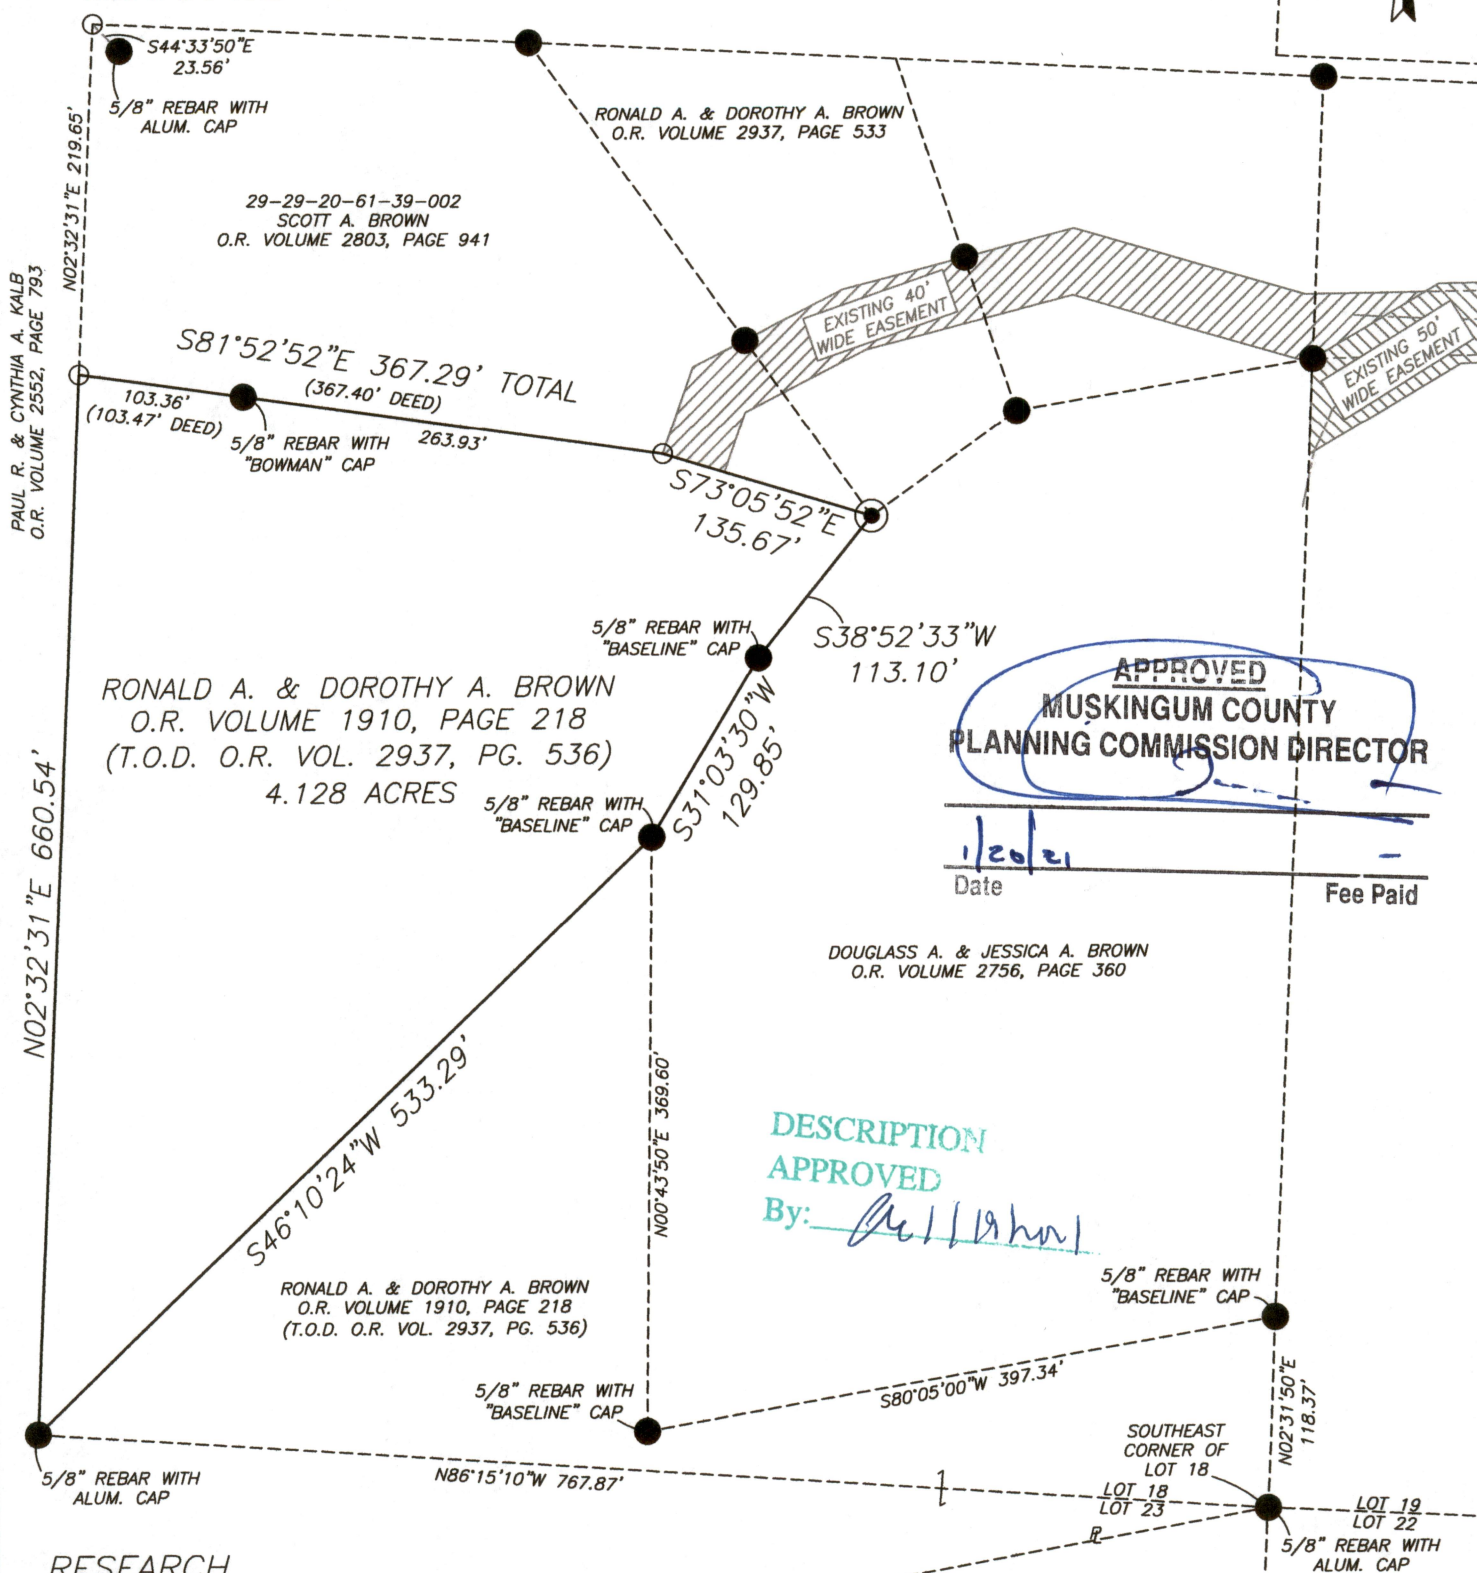 S44°33'50"E
23.56'
5/8" REBAR WITH
ALUM. CAP
N02°32'31"E 219.65'
RONALD A. & DOROTHY A. BROWN
O.R. VOLUME 2937, PAGE 533
29-29-20-61-39-002
SCOTT A. BROWN
O.R. VOLUME 2803, PAGE 941
PAUL R. & CYNTHIA A. KALB
O.R. VOLUME 2552, PAGE 793
EXISTING 40'
WIDE EASEMENT
EXISTING 50'
WIDE EASEMENT
S81°52'52"E 367.29' TOTAL
(367.40' DEED)
103.36'
(103.47' DEED)
5/8" REBAR WITH
"BOWMAN" CAP
263.93'
S73°05'52"E
135.67'
5/8" REBAR WITH
"BASELINE" CAP
S38°52'33"W
113.10'
RONALD A. & DOROTHY A. BROWN
O.R. VOLUME 1910, PAGE 218
(T.O.D. O.R. VOL. 2937, PG. 536)
4.128 ACRES
S31°03'30"W
129.85'
5/8" REBAR WITH
"BASELINE" CAP
APPROVED
MUSKINGUM COUNTY
PLANNING COMMISSION DIRECTOR
1/20/21 -
Date Fee Paid
N02°32'31"E 660.54'
DOUGLASS A. & JESSICA A. BROWN
O.R. VOLUME 2756, PAGE 360
S46°10'24"W 533.29'
N00°43'50"E 369.60'
DESCRIPTION
APPROVED
By:
RONALD A. & DOROTHY A. BROWN
O.R. VOLUME 1910, PAGE 218
(T.O.D. O.R. VOL. 2937, PG. 536)
5/8" REBAR WITH
"BASELINE" CAP
5/8" REBAR WITH
"BASELINE" CAP
S80°05'00"W 397.34'
N02°31'50"E
118.37'
SOUTHEAST
CORNER OF
LOT 18
5/8" REBAR WITH
ALUM. CAP
N86°15'10"W 767.87'
LOT 18
LOT 23
LOT 19
LOT 22
5/8" REBAR WITH
ALUM. CAP
RESEARCH